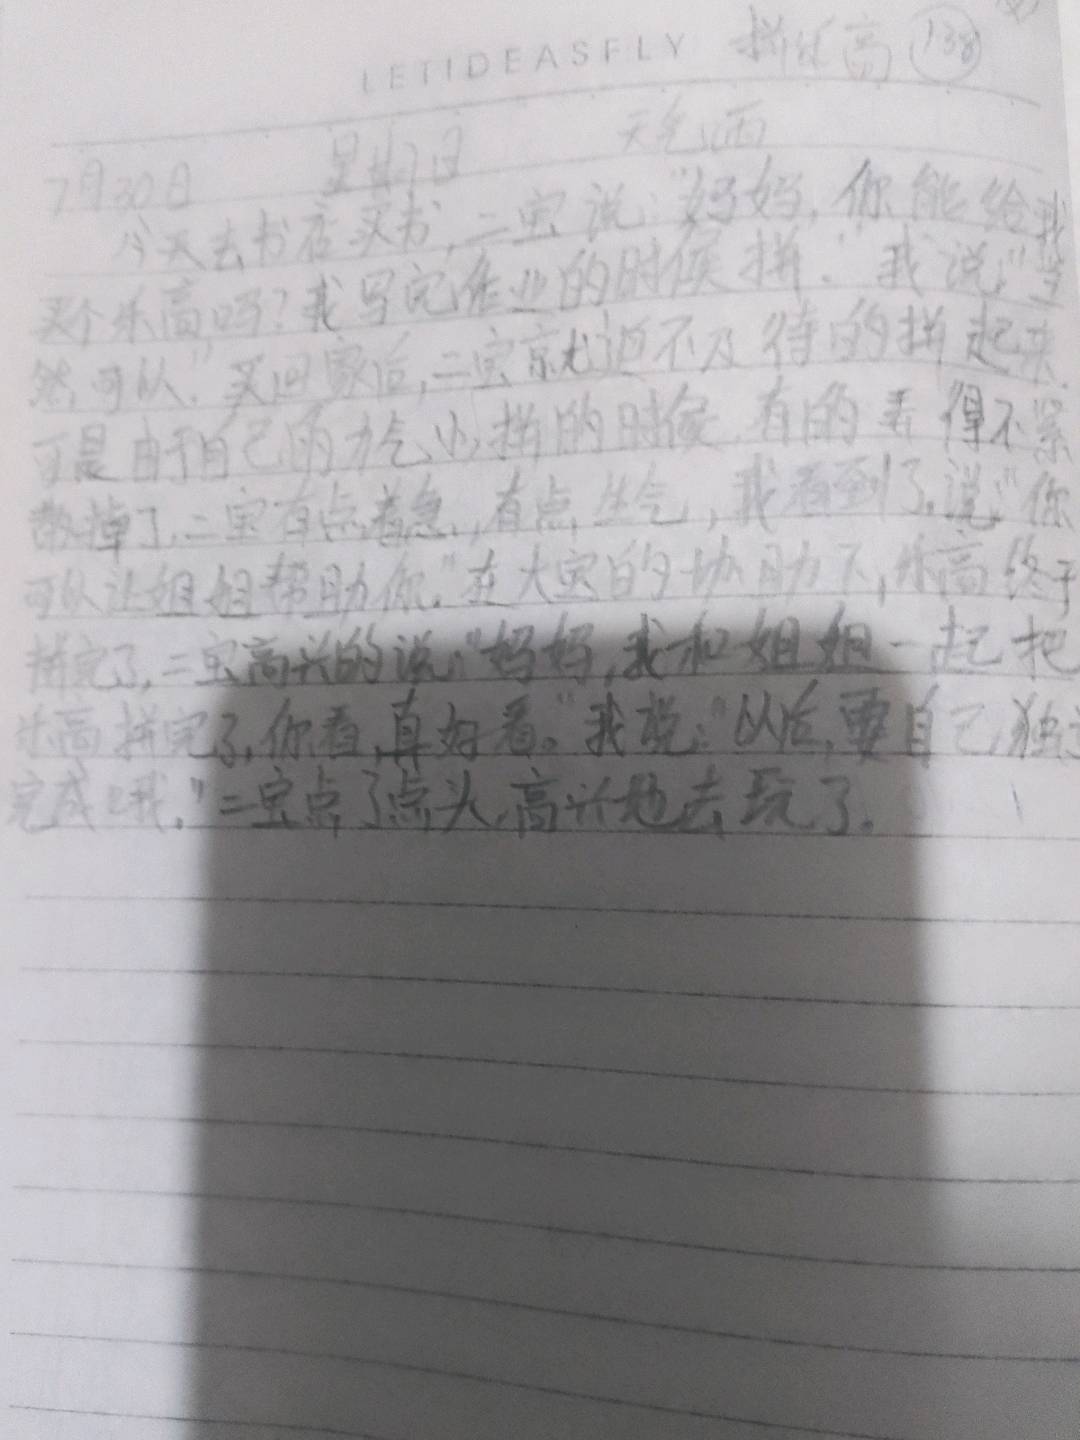 LETIDEASFLY 拼乐高 138
7月30日 星期日 天气:雨
今天去书店买书,二宝说:"妈妈,你能给我
买个乐高吗?我写完作业的时候拼."我说:"当
然可以."买回家后,二宝就迫不及待的拼起来.
可是由于自己的力气小,拼的时候,有的弄得不紧
散掉了,二宝有点着急,有点生气,我看到了,说:"你
可以让姐姐帮助你."在大宝的协助下,乐高终于
拼完了,二宝高兴的说:"妈妈,我和姐姐一起把
乐高拼完了,你看,真好看。"我说:"以后,要自己独立
完成哦."二宝点了点头,高兴地去玩了.